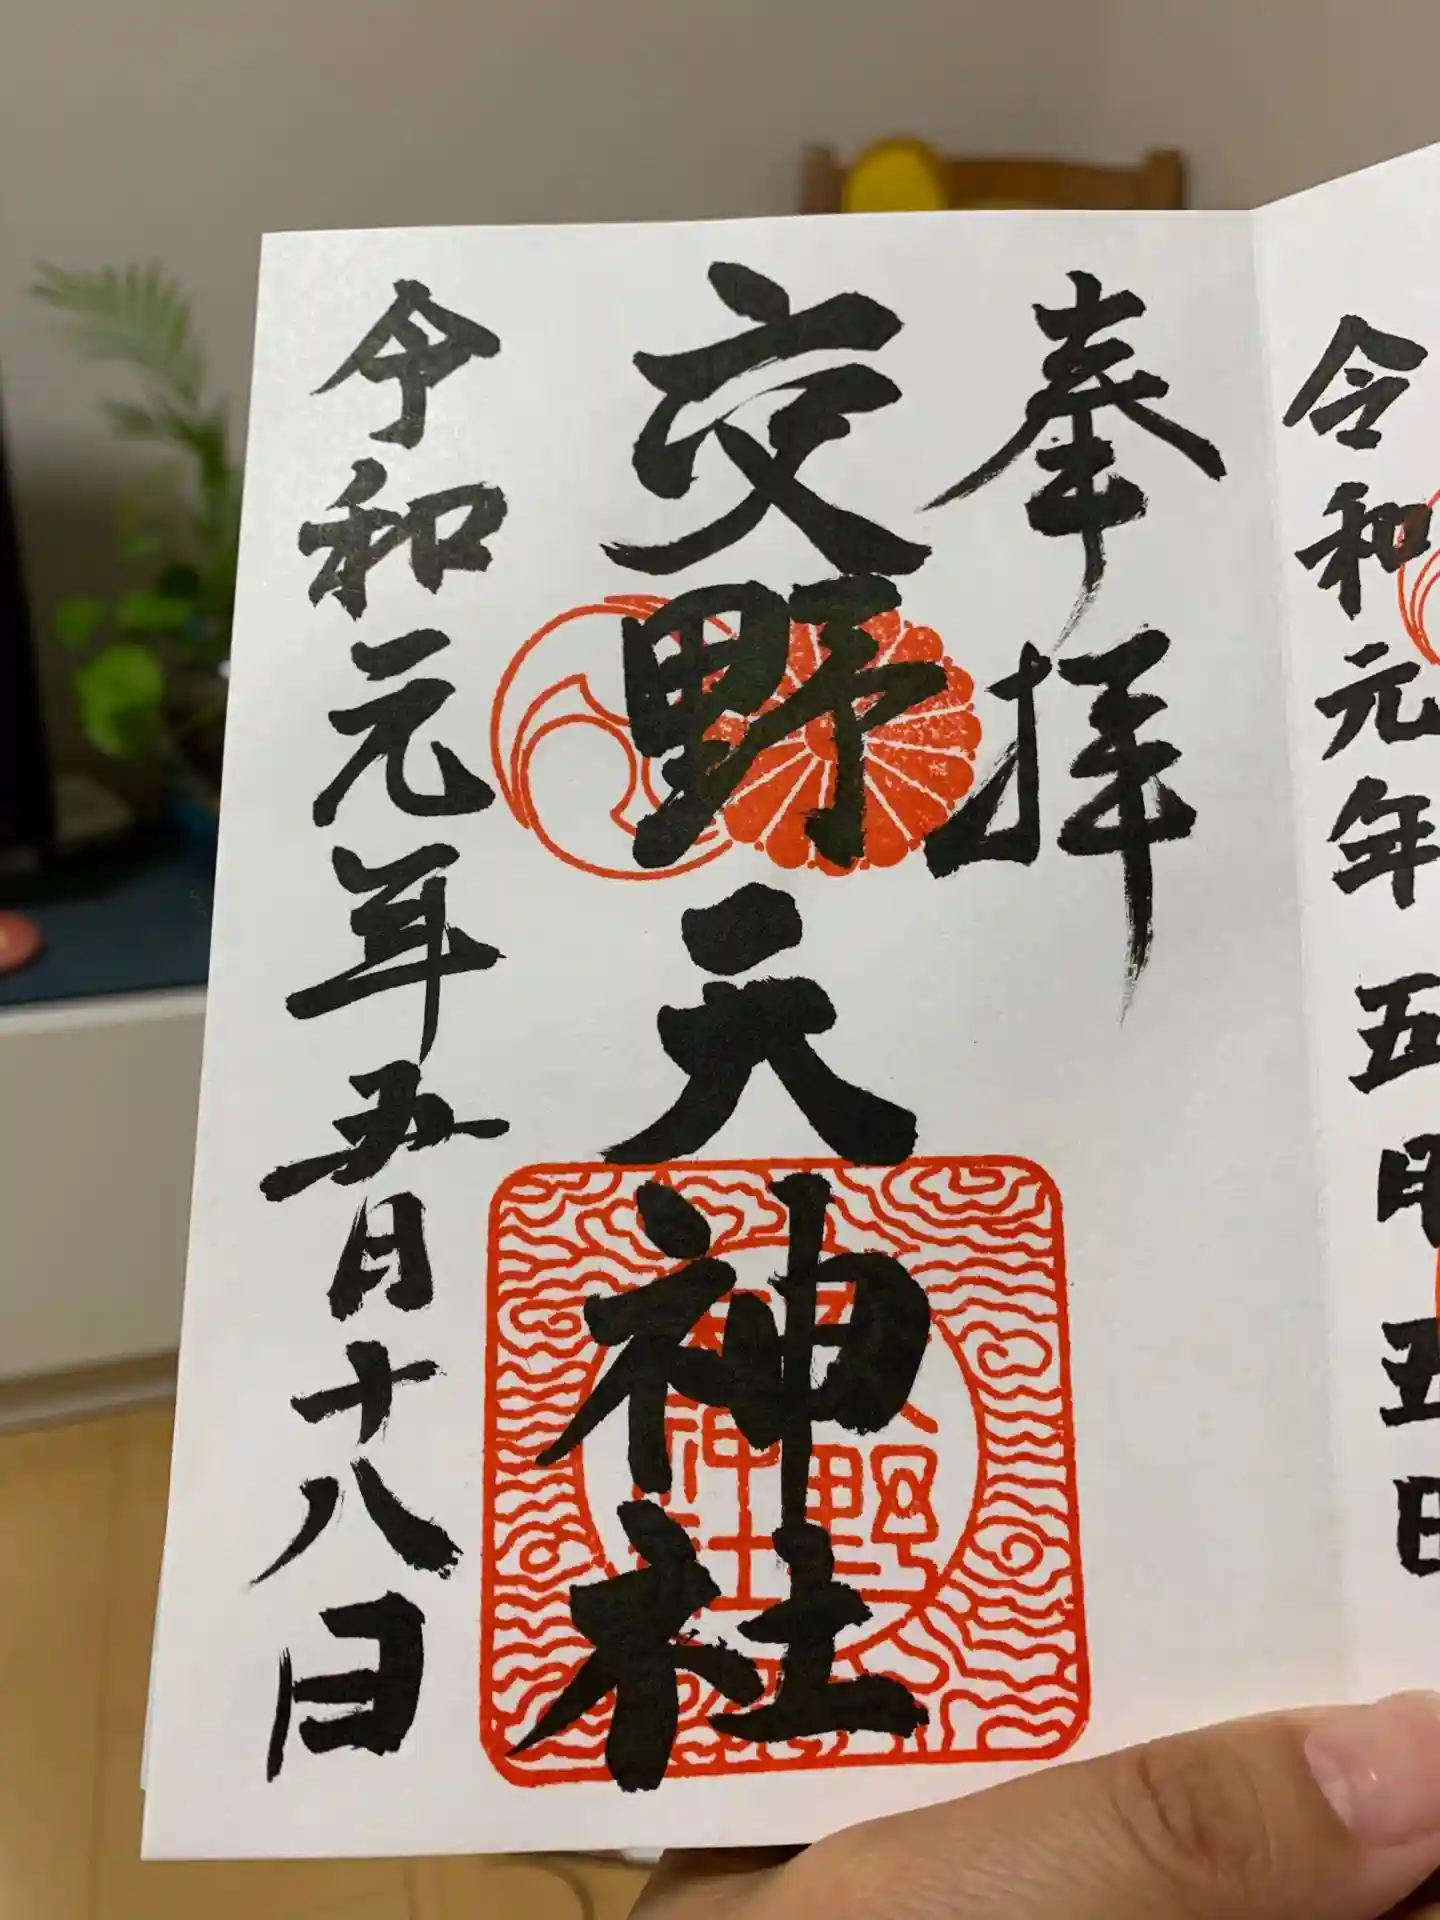 令和元年五月五日
奉拝
交野天神社
令和元年五月十八日